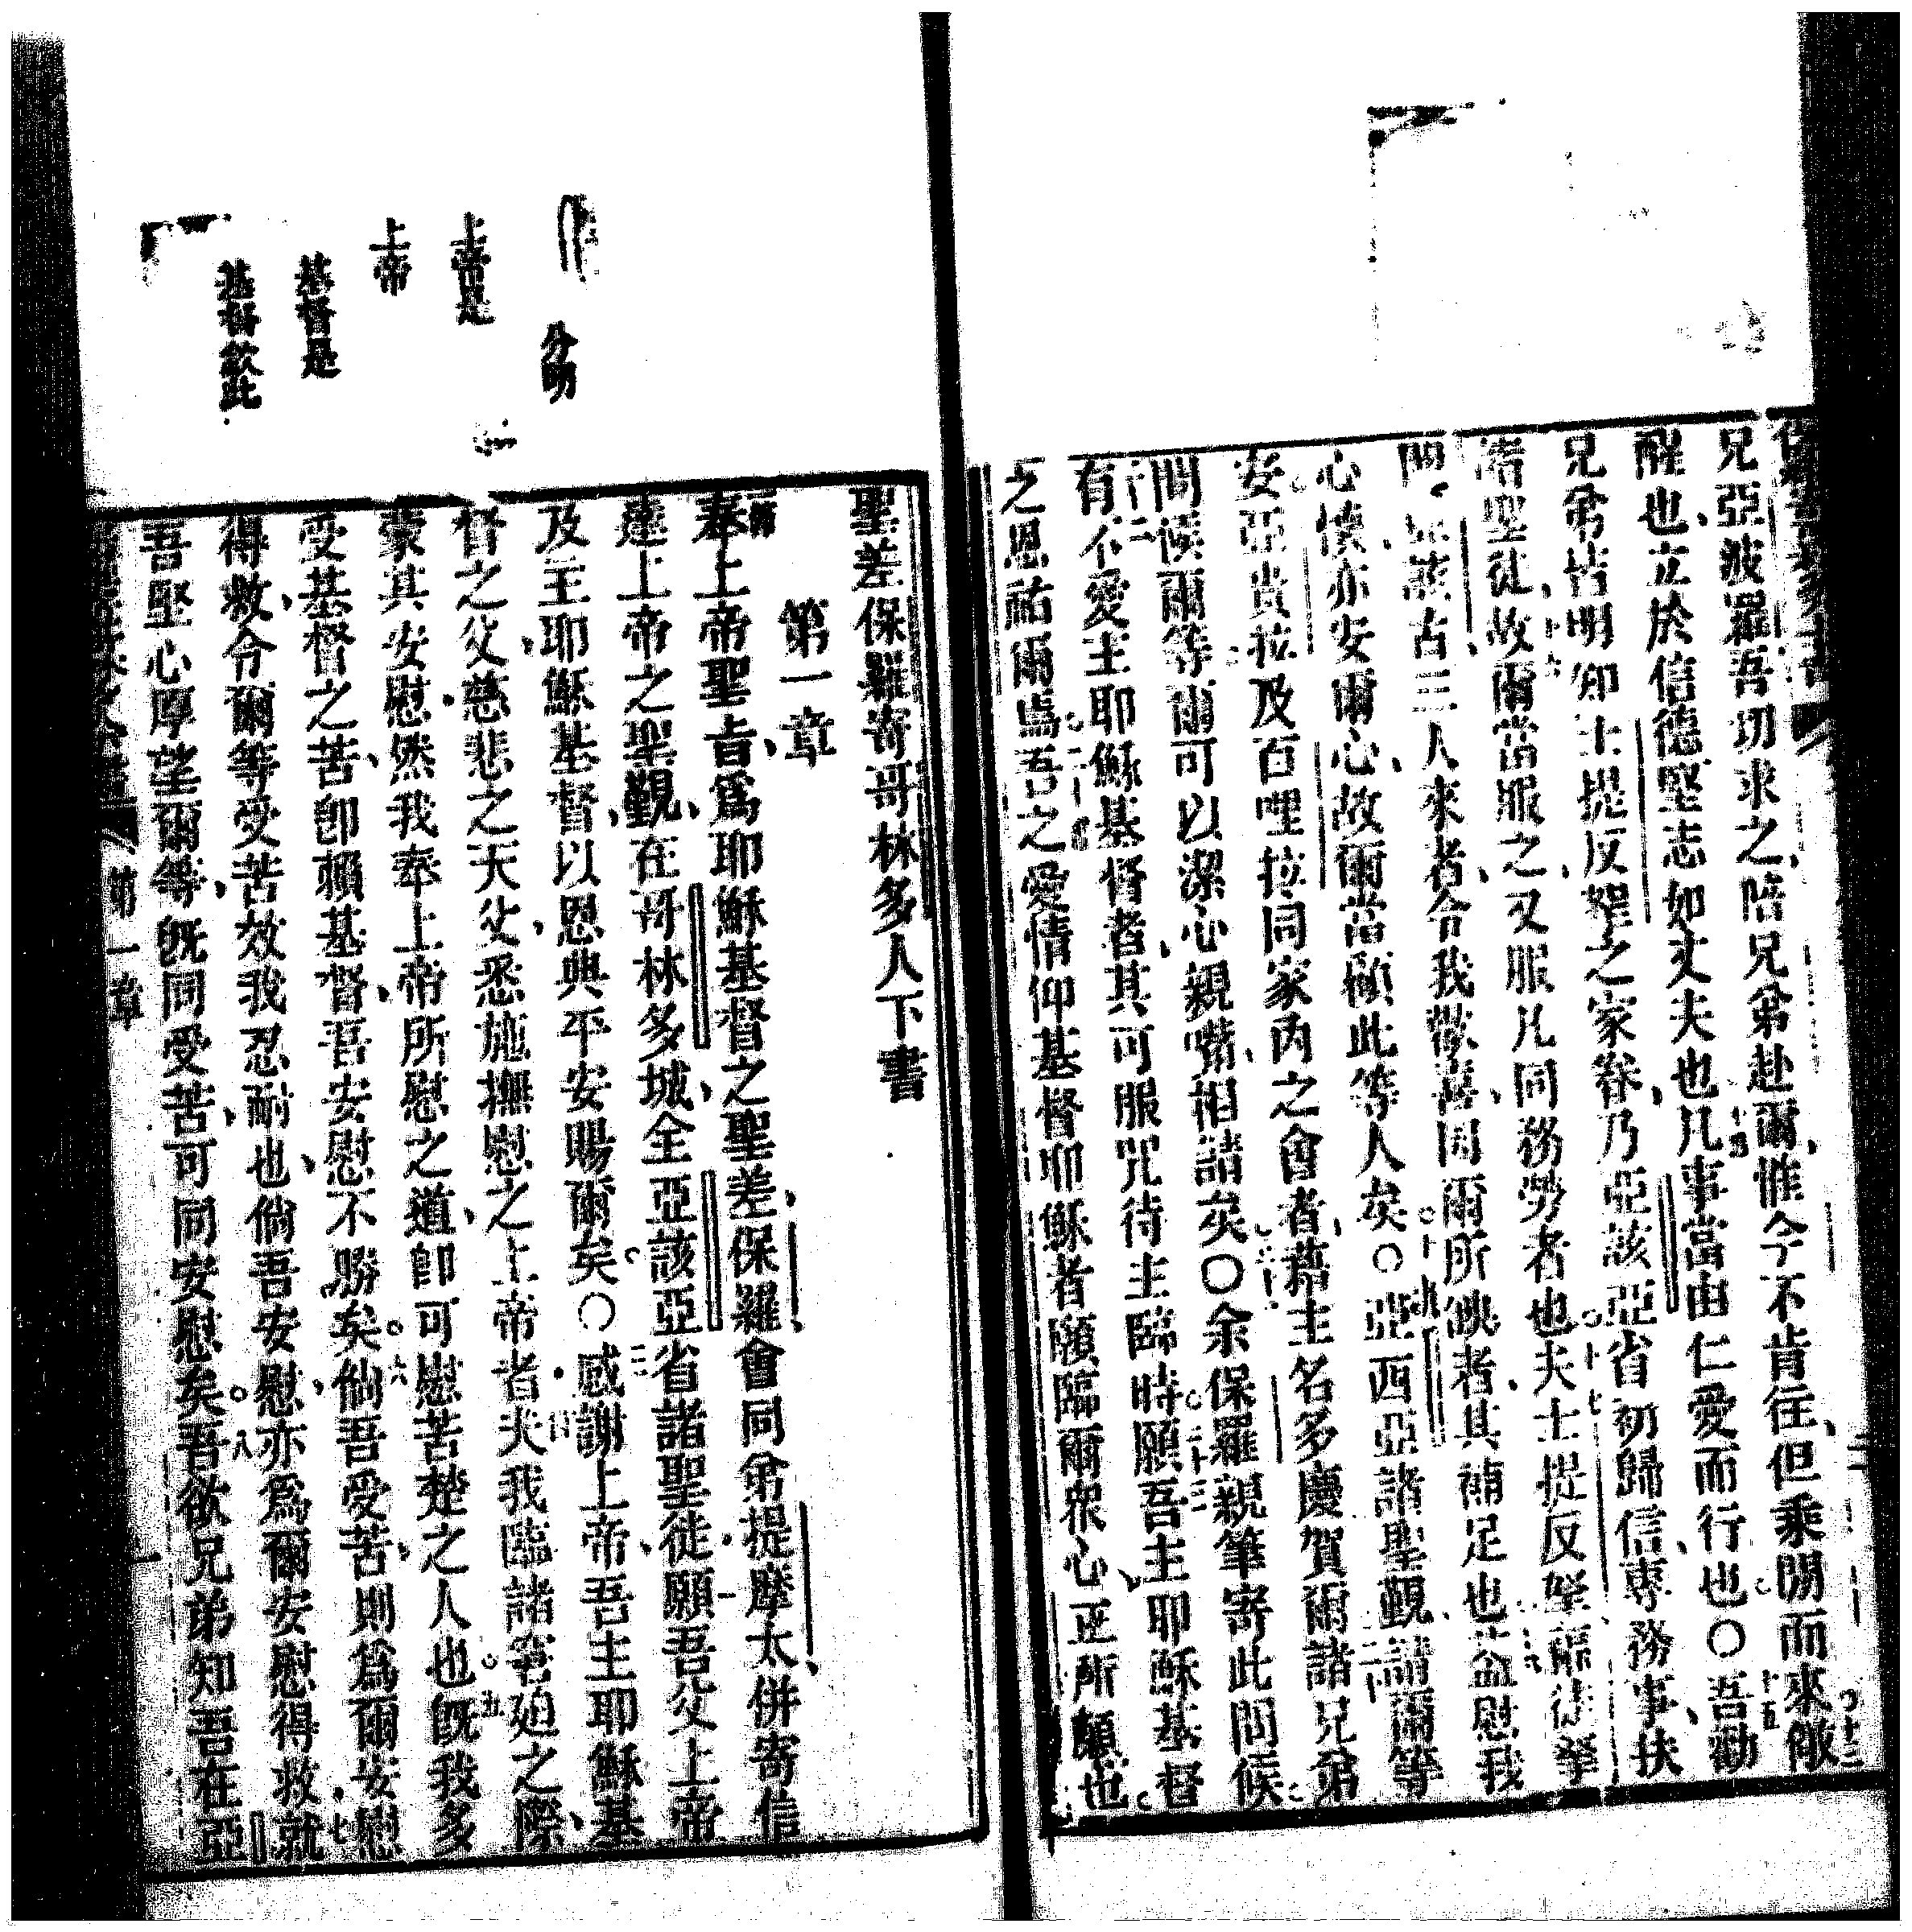 兄亞波羅吾切求之陪兄弟赴爾惟今不肯往但乘閒而來儆
醒也立於信德堅志如丈夫也凡事當由仁愛而行也〇吾勸
兄弟皆明知士提反拏之家眷乃亞該亞省初歸信專務事扶
諸聖徒故爾當服之又服凡同務勞者也夫士提反拏
亞該古三人來者令我歡喜因爾所缺者其補足也蓋慰我
心懷亦安爾心故爾當顧此等人矣〇亞西亞諸聖覲請爾等
安亞貴拉及百哩拉同家內之會者藉主名多慶賀爾諸兄弟
問候爾等爾可以潔心親嘴相請矣〇余保羅親筆寄此問候
有不愛主耶穌基督者其可服咒待主臨時願吾主耶穌基督
之恩祐爾焉吾之愛情仰基督耶穌者願臨爾衆心正所願也
聖差保羅寄哥林多人下書
第一章
奉上帝聖旨爲耶穌基督之聖差保羅會同弟提摩太併寄信
達上帝之聖覲在哥林多城全亞該亞省諸聖徒願吾父上帝
及主耶穌基督以恩與平安賜爾矣〇感謝上帝吾主耶穌基
督之父慈悲之天父悉施撫慰之上帝者夫我臨諸窘廹之際
蒙其安慰然我奉上帝所慰之道卽可慰苦楚之人也旣我多
受基督之苦卽賴基督吾安慰不勝矣倘吾受苦則爲爾安慰
得救令爾等受苦效我忍耐也倘吾安慰亦爲爾安慰得救就
吾堅心厚望爾等旣同受苦可同安慰矣吾欲兄弟知吾在亞
第一章
分明
上帝是
上帝
基督是
基督欽此